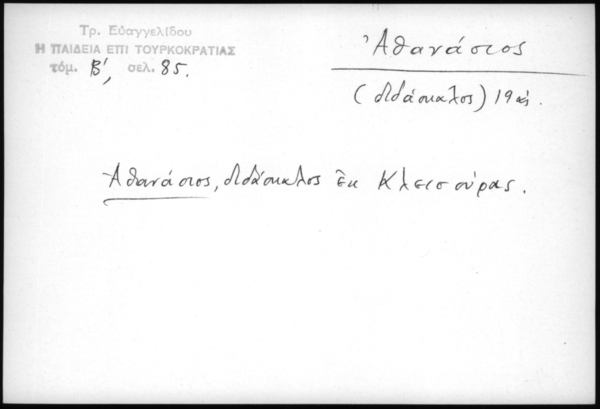 Τρ. Εὐαγγελίδου
Η ΠΑΙΔΕΙΑ ΕΠΙ ΤΟΥΡΚΟΚΡΑΤΙΑΣ
τόμ. Β', σελ. 85.
Ἀθανάσιος
(διδάσκαλος) 19 αἰ.
Ἀθανάσιος, διδάσκαλος ἐκ Κλεισούρας.